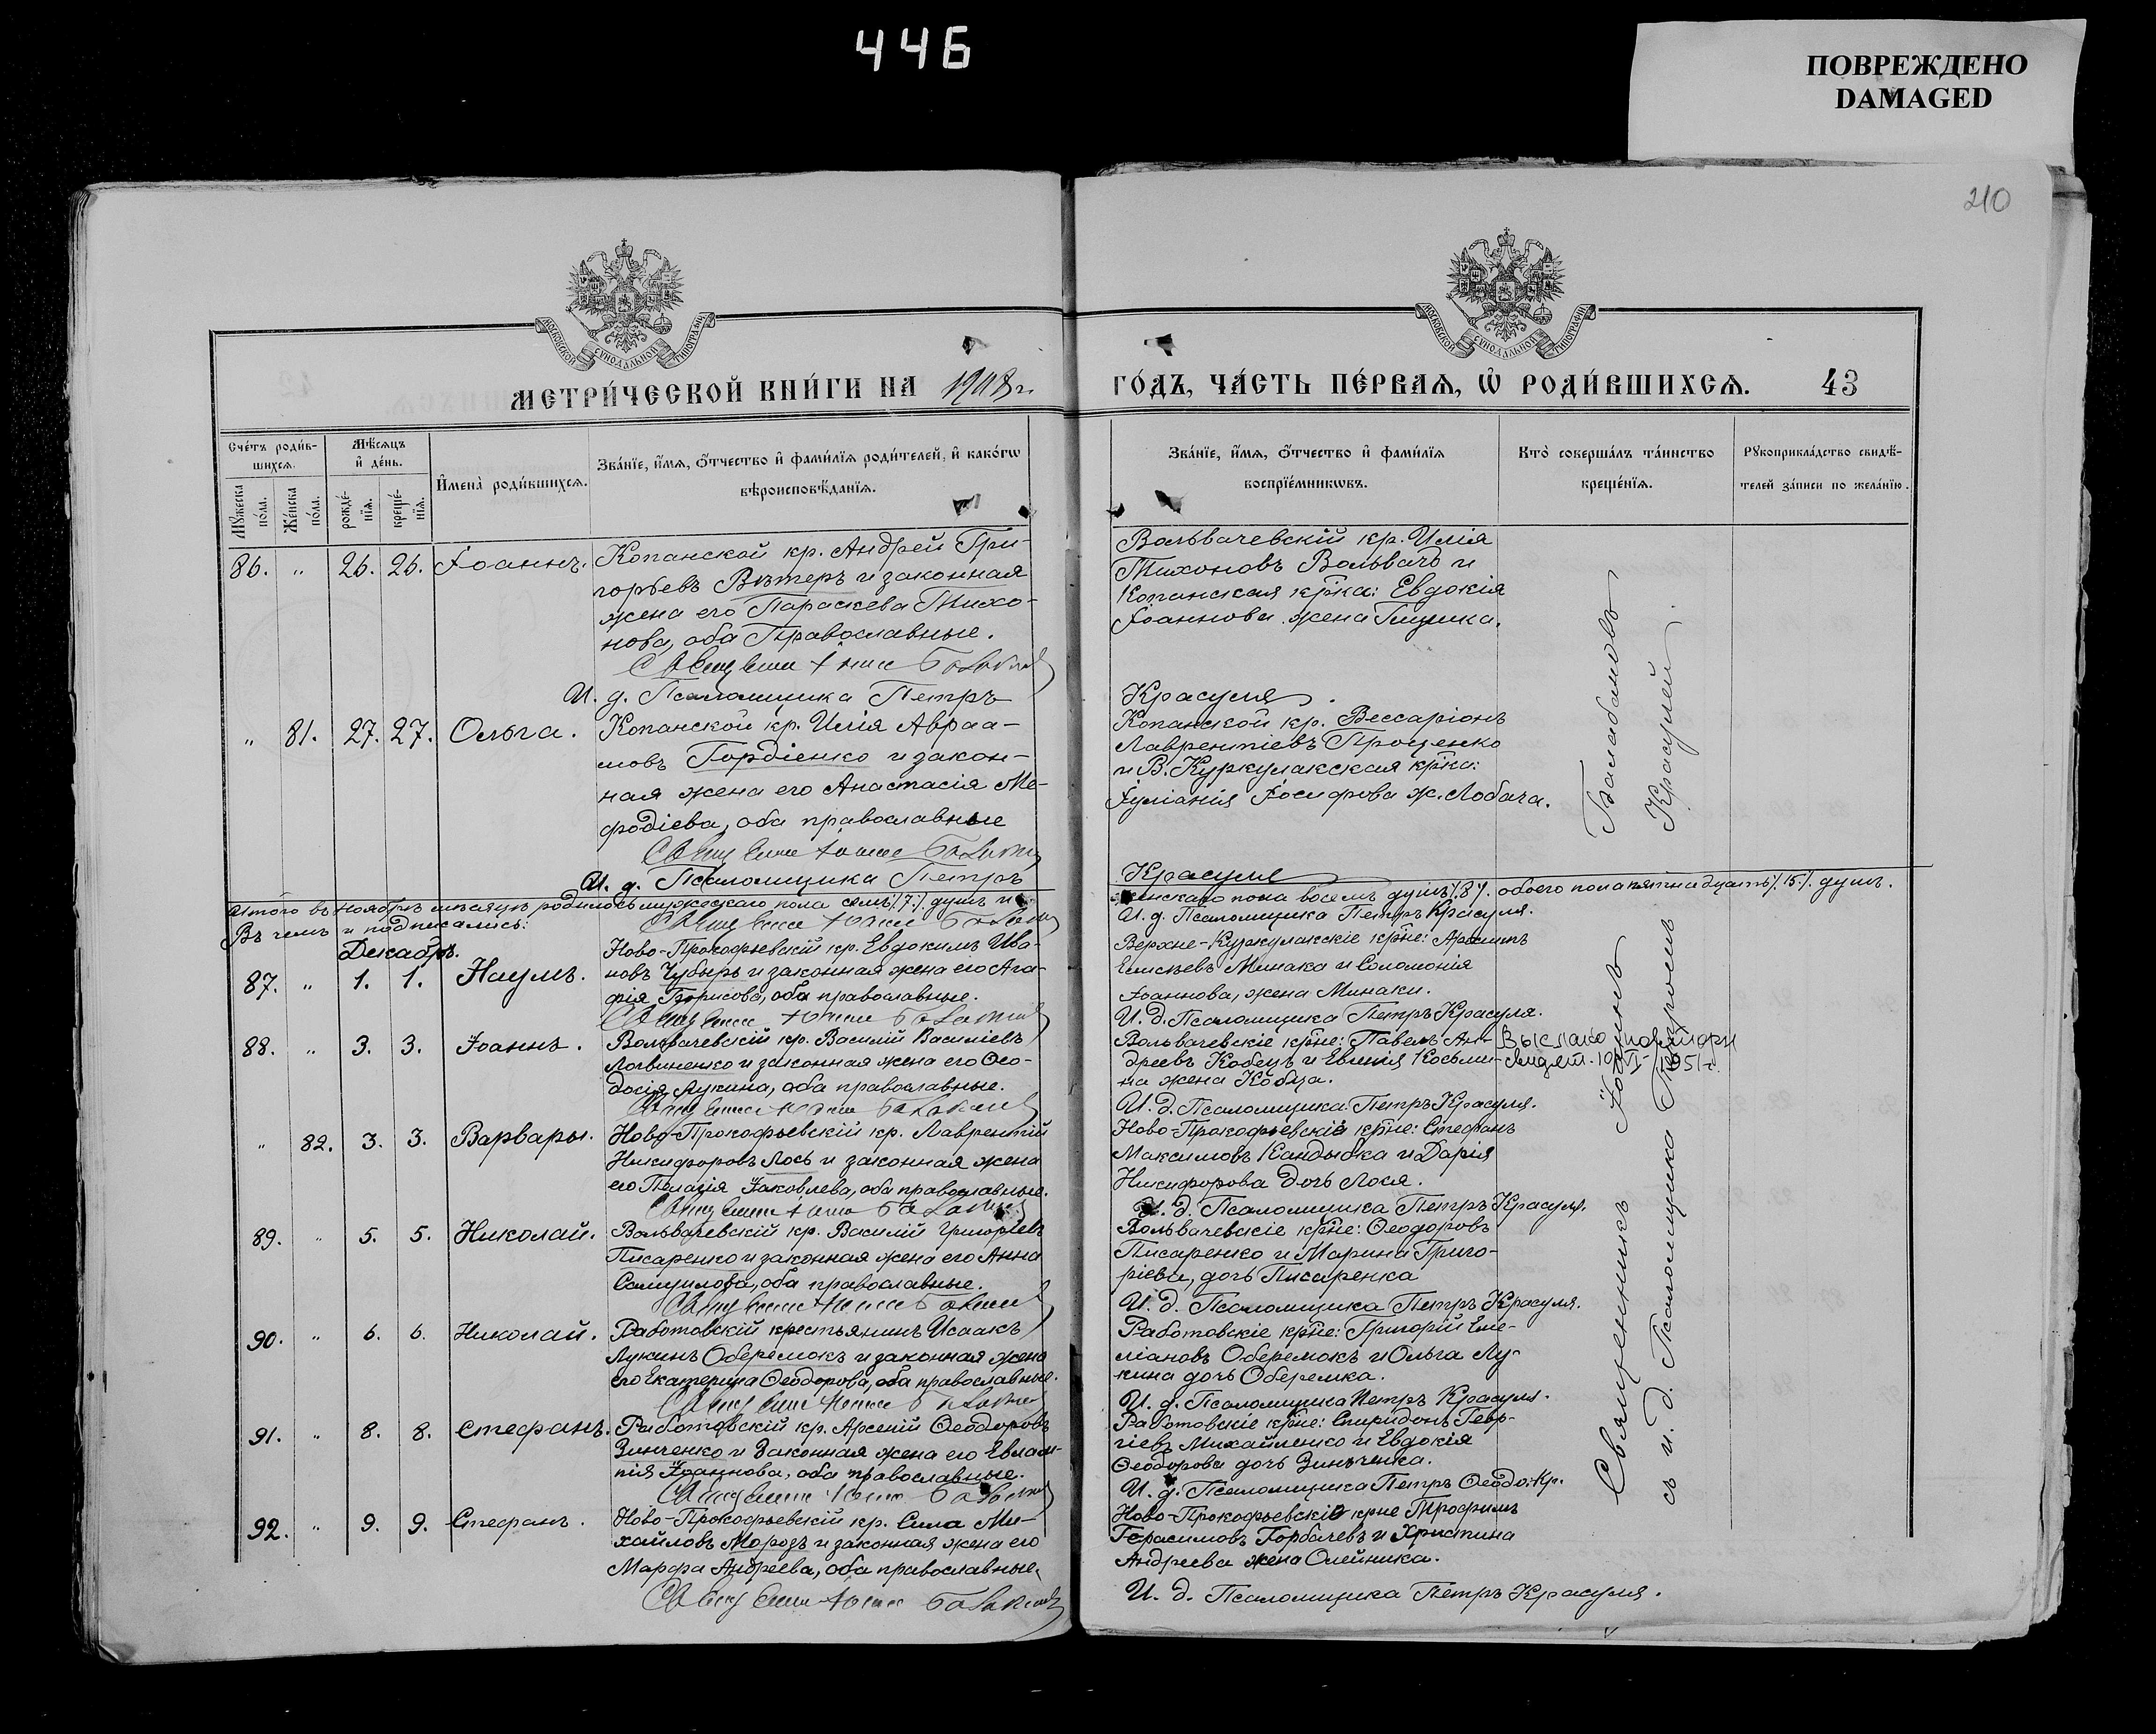 446
ПОВРЕЖДЕНО
DAMAGED
210
МОСКОВСКОЙ СѴНОДАЛЬНОЙ ТИПОГРАФІИ
МОСКОВСКОЙ СѴНОДАЛЬНОЙ ТИПОГРАФІИ
МЕТРИ́ЧЕСКОЙ КНИ́ГИ НА 1908 г.
ГО́ДЪ, ЧА́СТЬ ПЕ́РВАѦ, Ѡ҆ РОДИ́ВШИХСѦ. 43
Сче́тъ роди́в-
шихсѧ.
Мѣ́сѧцъ
и҆ де́нь.
Мꙋ́жеска по́ла.
Же́нска по́ла.
рожде́-
нїѧ.
креще́-
нїѧ.
И҆мена̀ роди́вшихсѧ.
Зва́нїе, и҆́мѧ, о҆́тчество и҆ фами́лїѧ роди́телей, и҆ како́гѡ
вѣроисповѣ́данїѧ.
Зва́нїе, и҆́мѧ, о҆́тчество и҆ фами́лїѧ
воспрїе́мникѡвъ.
Кто̀ соверша́лъ та́инство
креще́нїѧ.
Рꙋкоприкла́дство свидѣ́-
телей за́писи по жела́нїю.
86. " 26. 26. Іоаннъ. Копанской кр. Андрей Гри-
горьевъ Вѣтеръ и законная
жена его Параскева Тихо-
нова, оба Православные.
И. д. Псаломщика Петръ
Вольвачевскій кр. Илія
Тихоновъ Вольвачъ и
Копанская кр̃ка: Евдокія
Іоаннова жена
Красуля.
" 81. 27. 27. Ольга. Копанской кр. Илія Авраа-
мовъ Гордіенко и закон-
ная жена его Анастасія Ме-
фодіева, оба православные
И. д. Псаломщика Петръ
Копанской кр. Виссаріонъ
Лаврентіевъ Проценко
и В. Куркулакская кр̃ка:
Іуліанія Іосифова ж. Лобача.
Красуля
Итого въ Ноябрѣ мѣсяцѣ родилось мужескаго пола семь /7/. душъ и
женскаго пола восемь душъ /8/. обоего пола пятнадцать /15/. душъ.
Въ чемъ и подписались:
И. д. Псаломщика Петръ Красуля.
Декабрь.
87. " 1. 1. Наумъ. Ново-Прокофьевскій кр. Евдокимъ Ива-
новъ Чубырь и законная жена его Ага-
фія Борисова, оба православные.
Верхне-Куркулакскіе кр̃не:
Елисѣевъ Минака и Соломонія
Іоаннова, жена Минаки.
И. д. Псаломщика Петръ Красуля.
88. " 3. 3. Іоаннъ. Вольвачевскій кр. Василій Василіевъ
Логвиненко и законная жена его Ѳео-
досія Лукина, оба православные.
Вольвачевскіе кр̃не: Павелъ Ан-
дреевъ Кобецъ и Евгенія Косьми-
на жена Кобца.
И. д. Псаломщика: Петръ Красуля.
Выслано
1951 г.
" 82. 3. 3. Варвары. Ново-Прокофьевскій кр. Лаврентій
Никифоровъ Лось и законная жена
его Пелагія Іаковлева, оба православные.
Ново-Прокофьевскіе кр̃не: Стефанъ
Максимовъ Кандыбка и Дарія
Никифорова дочь Лося.
И. д. Псаломщика Петръ Красуля.
89. " 5. 5. Николай. Вольвачевскій кр. Василій Григоріевъ
Писаренко и законная жена его Анна
Самуилова, оба православные.
Вольвачевскіе кр̃не: Ѳеодоровъ
Писаренко и Марина Григо-
ріева, дочь Писаренка
И. д. Псаломщика Петръ Красуля.
90. " 6. 6. Николай. Работовскій крестьянинъ Исаакъ
Лукинъ Оберемокъ и законная жена
его Екатерина Ѳеодорова, оба православные.
Работовскіе кр̃не: Григорій Еме-
ліановъ Оберемокъ и Ольга Лу-
кина дочь Оберемка.
И. д. Псаломщика Петръ Красуля.
91. " 8. 8. Стефанъ. Работовскій кр. Арсеній Ѳеодоровъ
Зинченко и законная жена его Евлам-
пія Іоаннова, оба православные.
Работовскіе кр̃не: Спиридонъ Геор-
гіевъ Михайленко и Евдокія
Ѳеодорова дочь Зинченка.
И. д. Псаломщика Петръ Ѳеодо. Кр.
92. " 9. 9. Стефанъ. Ново-Прокофьевскій кр. Сила Ми-
хайловъ Морозъ и законная жена его
Марфа Андреева, оба православные.
Ново-Прокофьевскіе крне Трофимъ
Герасимовъ Горбачевъ и Христина
Андреева жена Олейника.
И. д. Псаломщика Петръ Красуля.
Священникъ Іоаннъ Балабановъ
съ и. д. Псаломщика Петромъ Красулей.